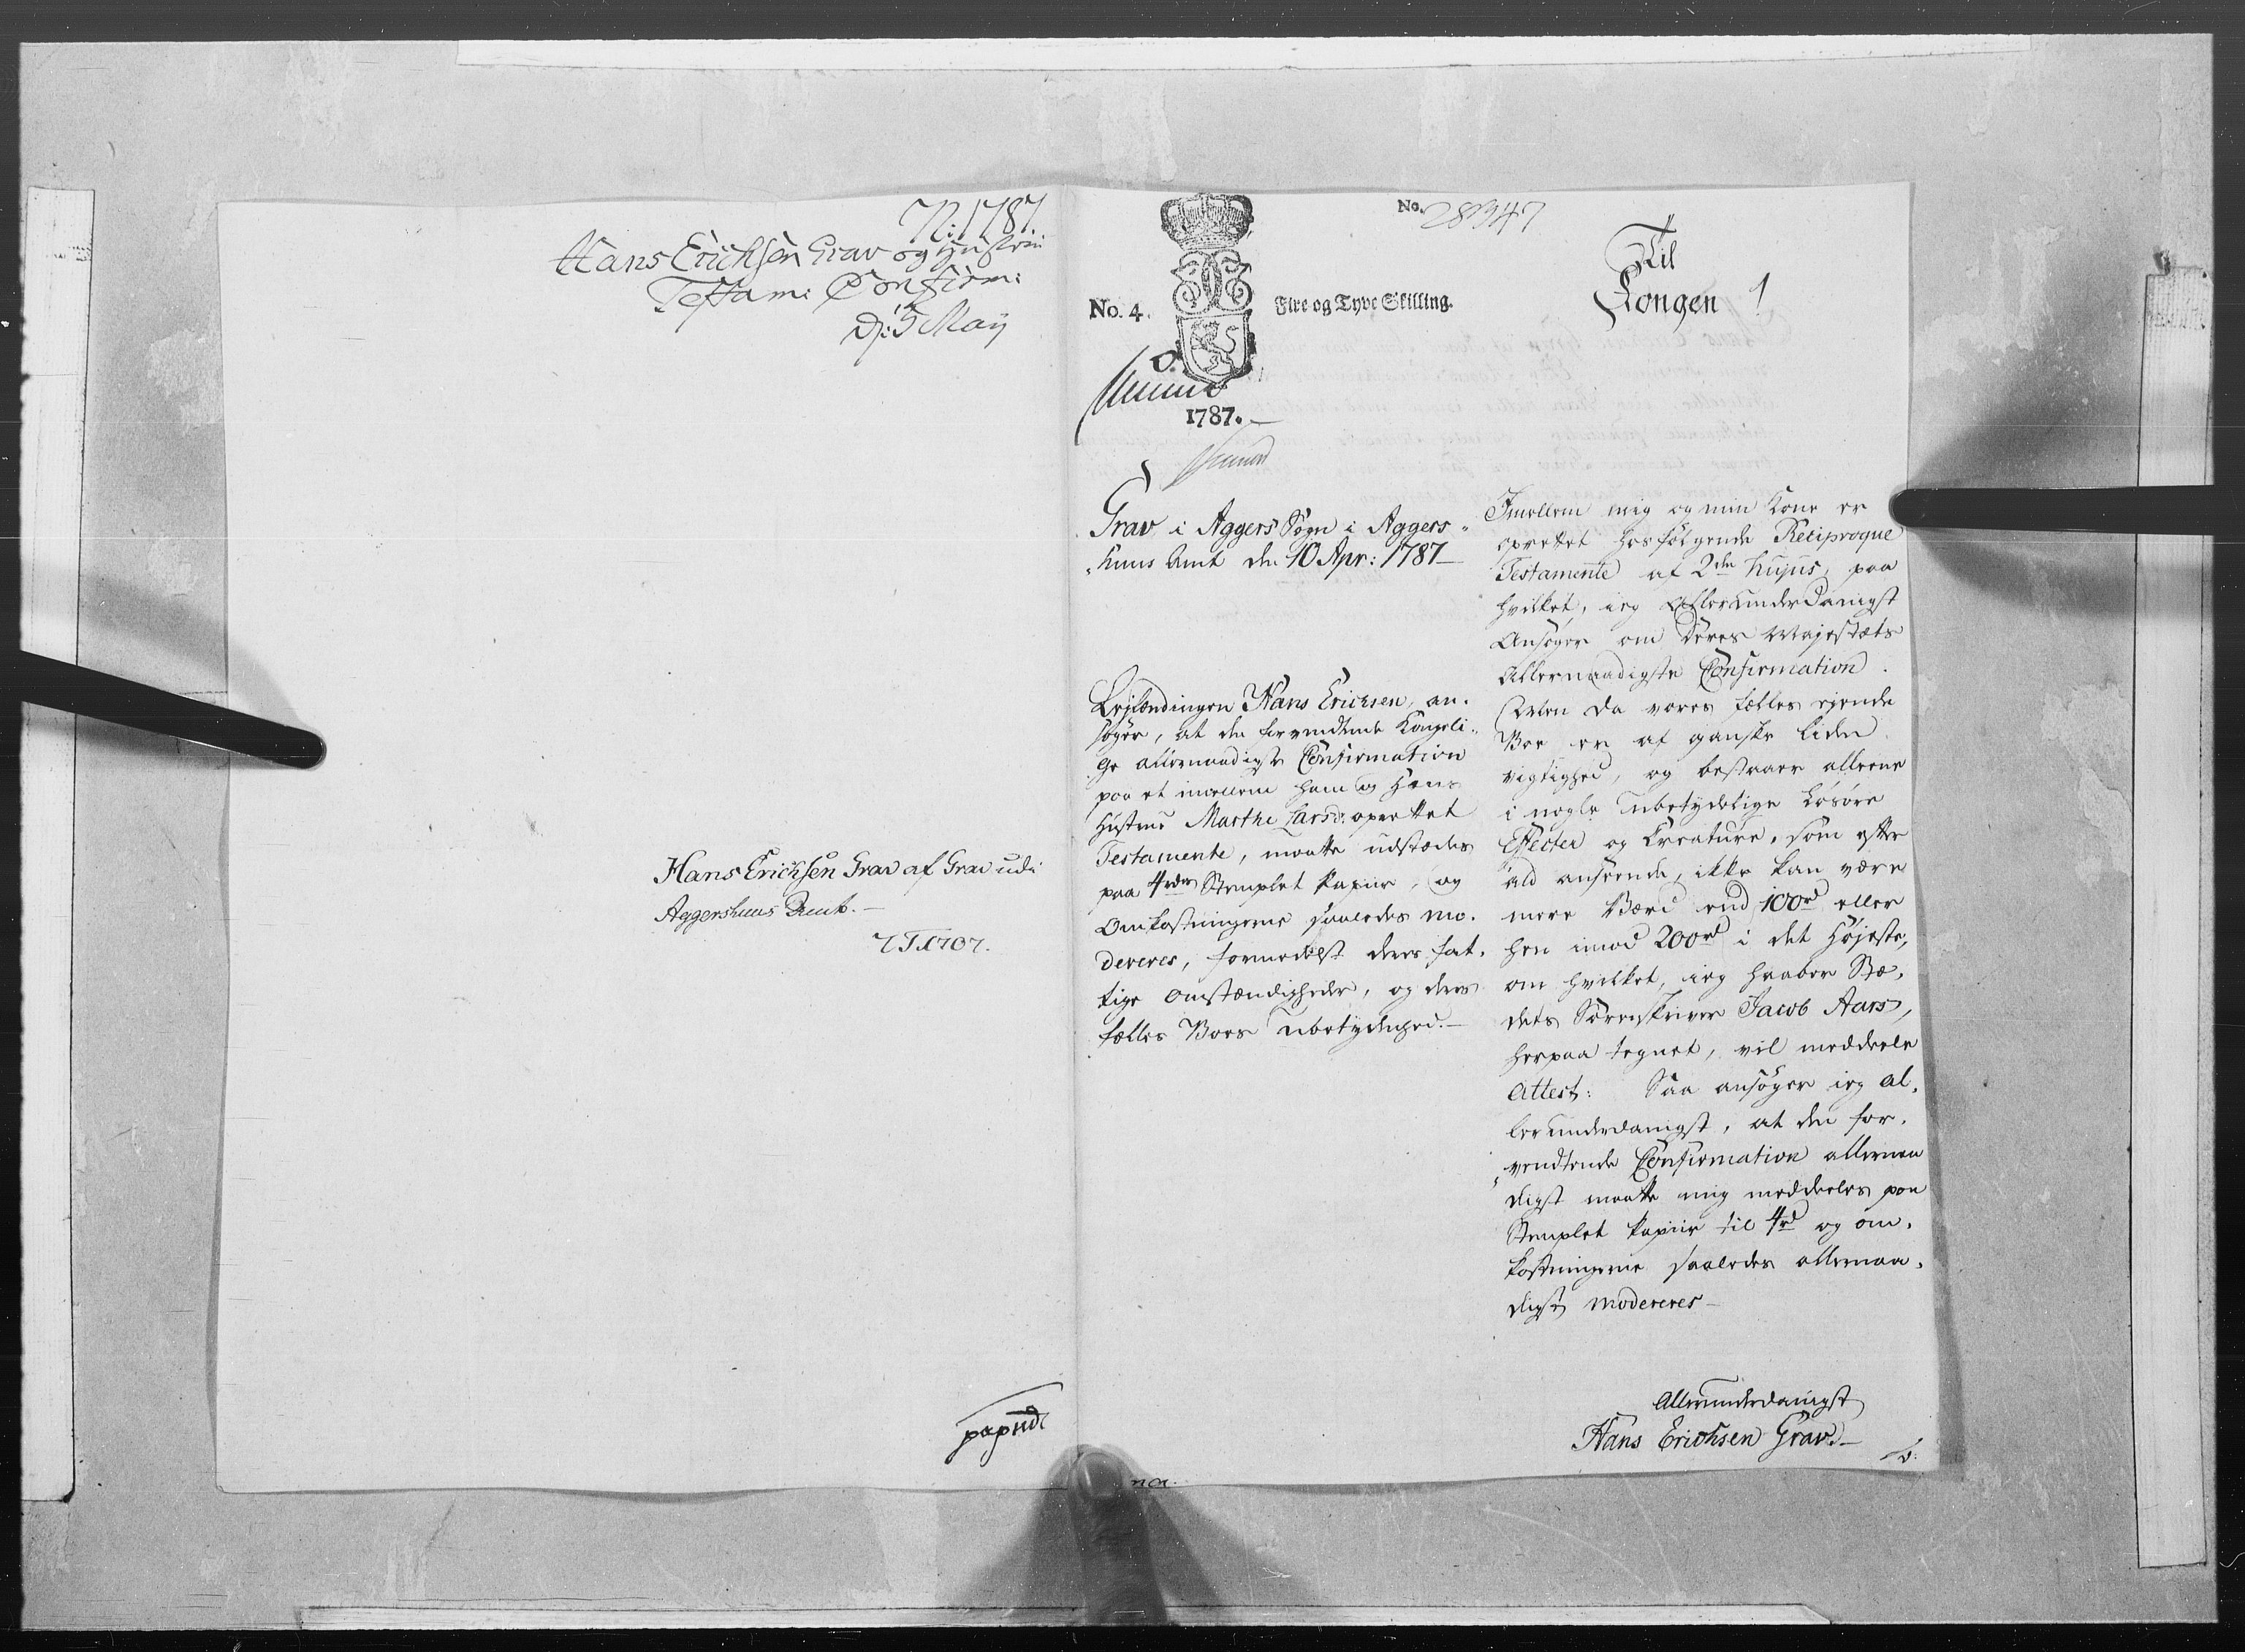 N: 1787
Hans Erichsen Grav og Hustrue
Testam: Confirm:
D: 5 Maij
Hans Erichsen Grav af Grav udi
Aggershuus Amt. —
No. 28347
No. 4.
Fire og Tyve Skilling.
1787.
Til
Kongen
Grav i Aggers Sogn i Aggers-
huus Amt den 10 Apr: 1787 —
Lejlændingen Hans Erichsen, an-
søger, at den forvendtende Kongeli-
ge allernaadigste Confirmation
paa et imellem ham og Hans
Hustrue Marthe Larsd: oprettet
Testamente, maatte udstædes
paa 4rdrs Stemplet Papiir, og
Omkostningerne saaledes mo-
dereres, formedelst deres fat-
tige Omstændigheder, og deres
fælles Boes Ubetydenhed. —
Imellem mig og min Kone er
oprettet hosfølgende Reciproque
Testamente af 2den hujus, paa
hvilket, jeg Allerunderdanigst
Ansøger om Deres Majestæts
Allernaadigste Confirmation.
Men da vores fælles ejende
Boe er af ganske liden
vigtighed, og bestaaer alleene
i nogle Ubetydelige Løsøre
Effecter og Creature, som efter
ald anseende, ikke kan være
mere Værd end 100rd eller
hen imod 200rd i det Højeste,
om hvilket, jeg haaber Stæ-
dets Sorenskriver Jacob Aars,
herpaa tegnet, vil meddeele
Attest: Saa ansøger jeg al-
lerunderdanigst, at den for-
vendtende Confirmation allernaa
digst maatte mig meddeeles paa
Stemplet Papiir til 4rd og om-
kostningerne saaledes allernaa-
digst modereres —
Allerunderdanigst
Hans Erichsen Grav. —